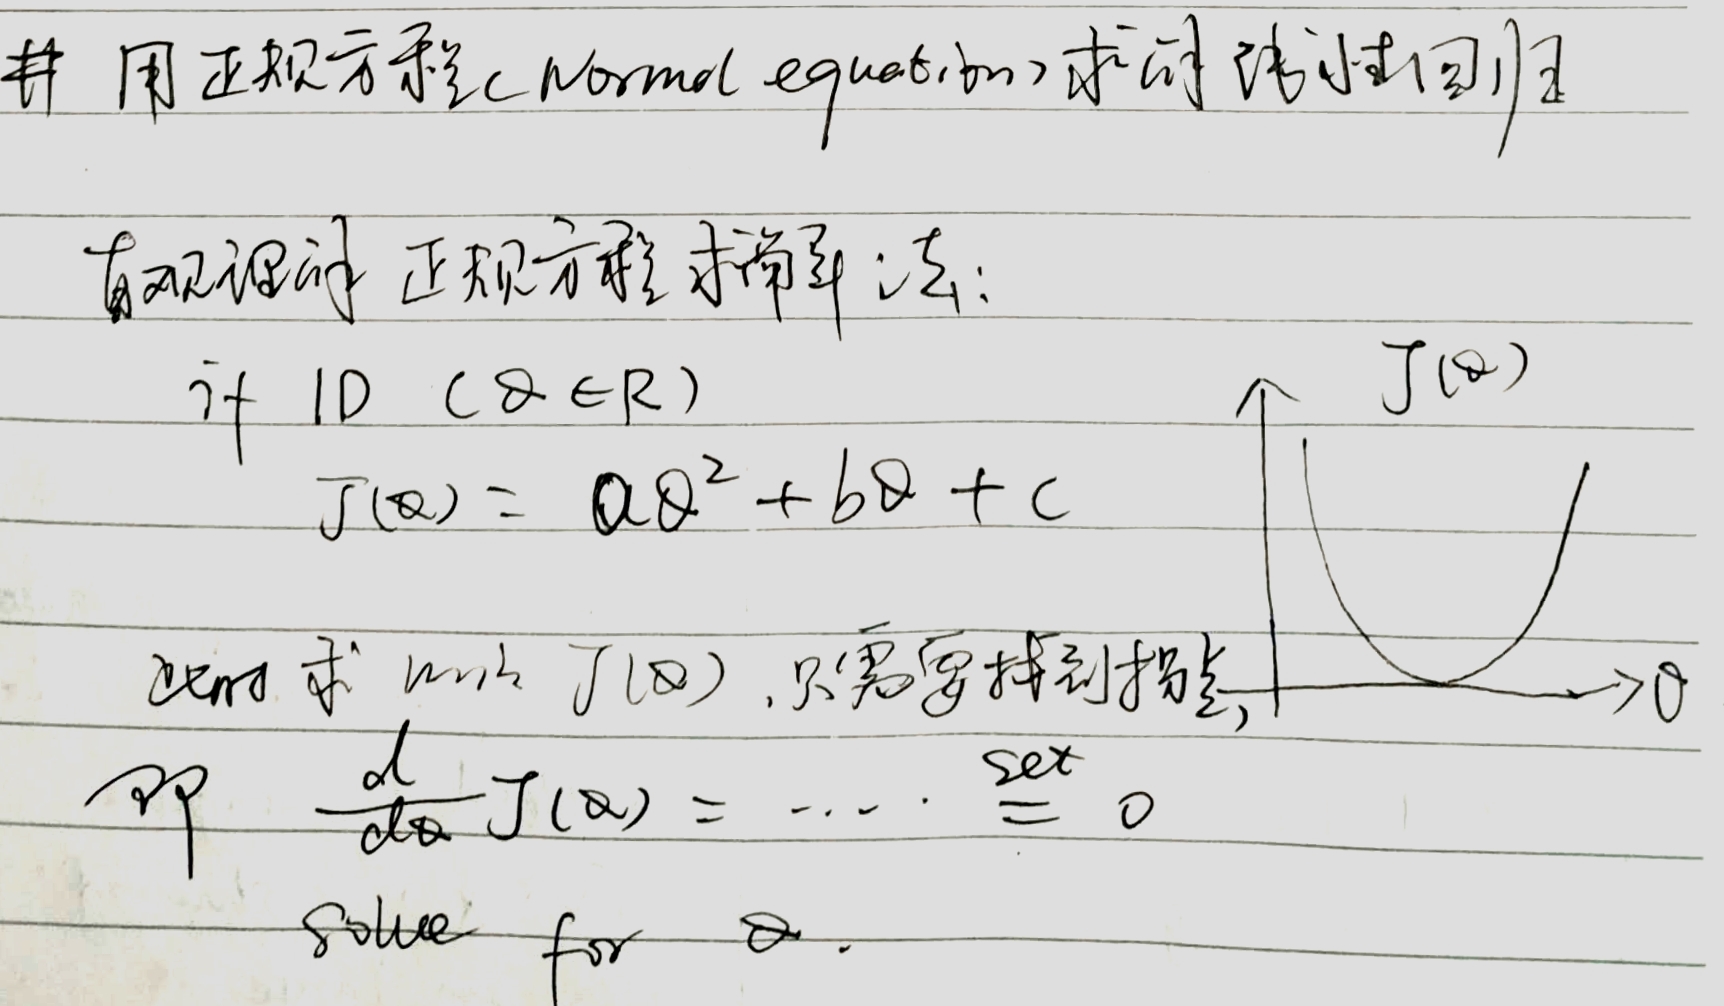 # 用正规方程(Normal equation)求解线性回归
直观理解正规方程求解算法:
if 1D (θ∈R)
J(θ)
J(θ) = aθ² + bθ + c
此时求 min J(θ),只需要找到拐点,
θ
即 d/dθ J(θ) = ..... set = 0
solve for θ.